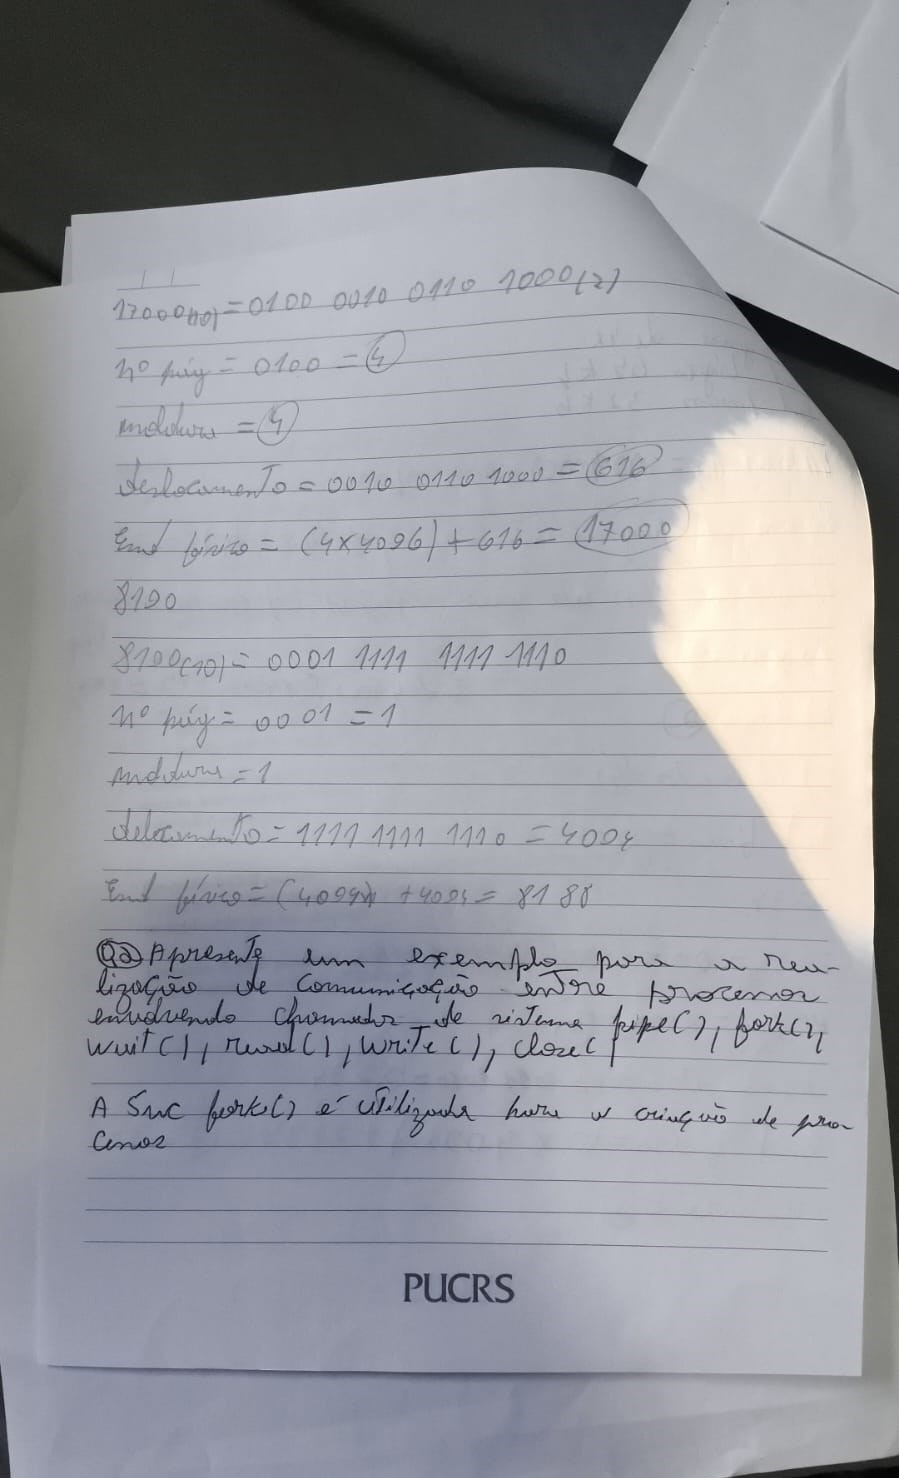 17000(10) = 0100 0010 0110 1000(2)
nº pág = 0100 = 4
moldura = 4
deslocamento = 0010 0110 1000 = 616
End físico = (4x4096) + 616 = 17000
8190
8190(10) = 0001 1111 1111 1110
nº pág = 0001 = 1
moldura = 1
delocamento = 1111 1111 1110 = 4094
End físico = + 4094 = 8188
Q2) Apresente um exemplo para a rea-
lização de comunicação entre processos
envolvendo chamadas de sistema pipe(), fork(),
wait(), read(), write(), close(
A fork() é utilizada para a criação de pro
cessos
PUCRS